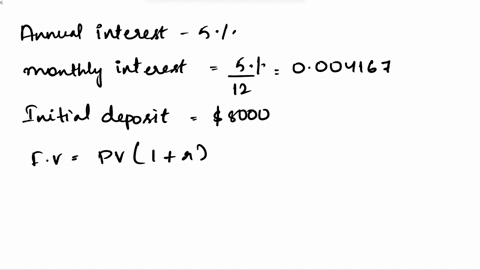 Annual interest - 5%
monthly interest = 5%/12 = 0.004167
Initial deposit = $8000
F.V = PV(1+r)